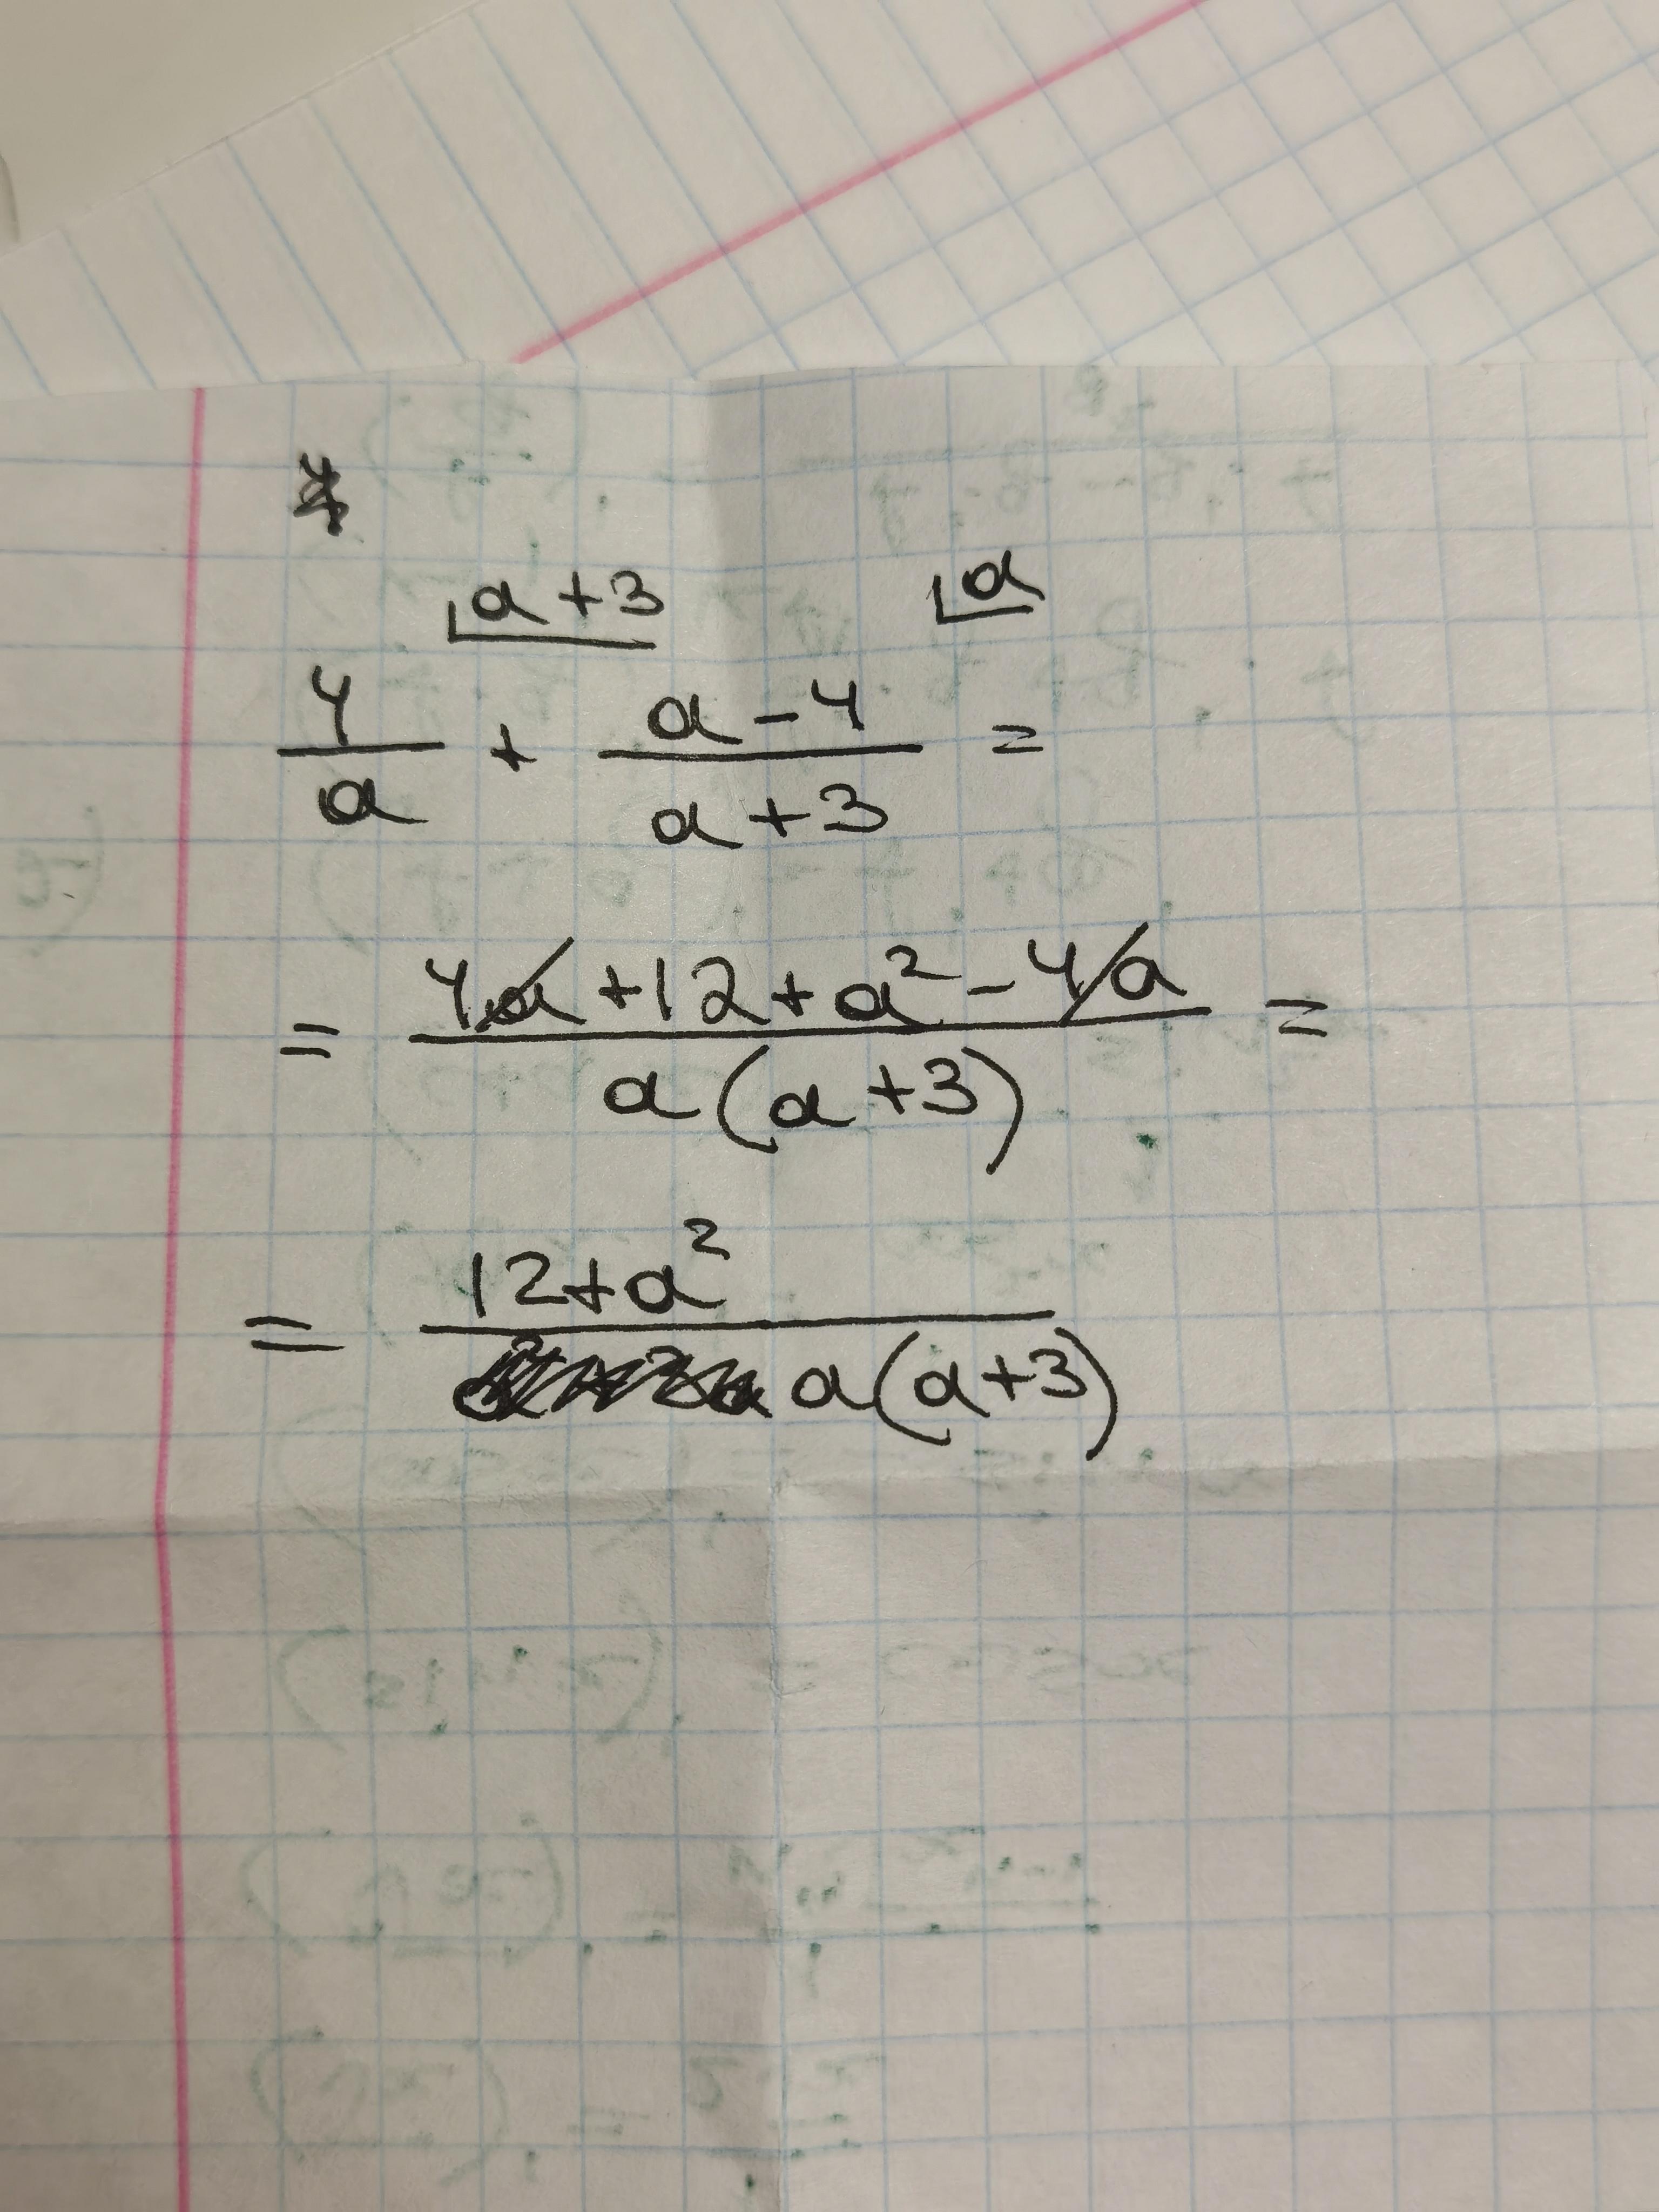 a+3 a
4/a + (a-4)/(a+3) =
= (4a+12+a²-4a)/(a(a+3)) =
= (12+a²)/(a(a+3))